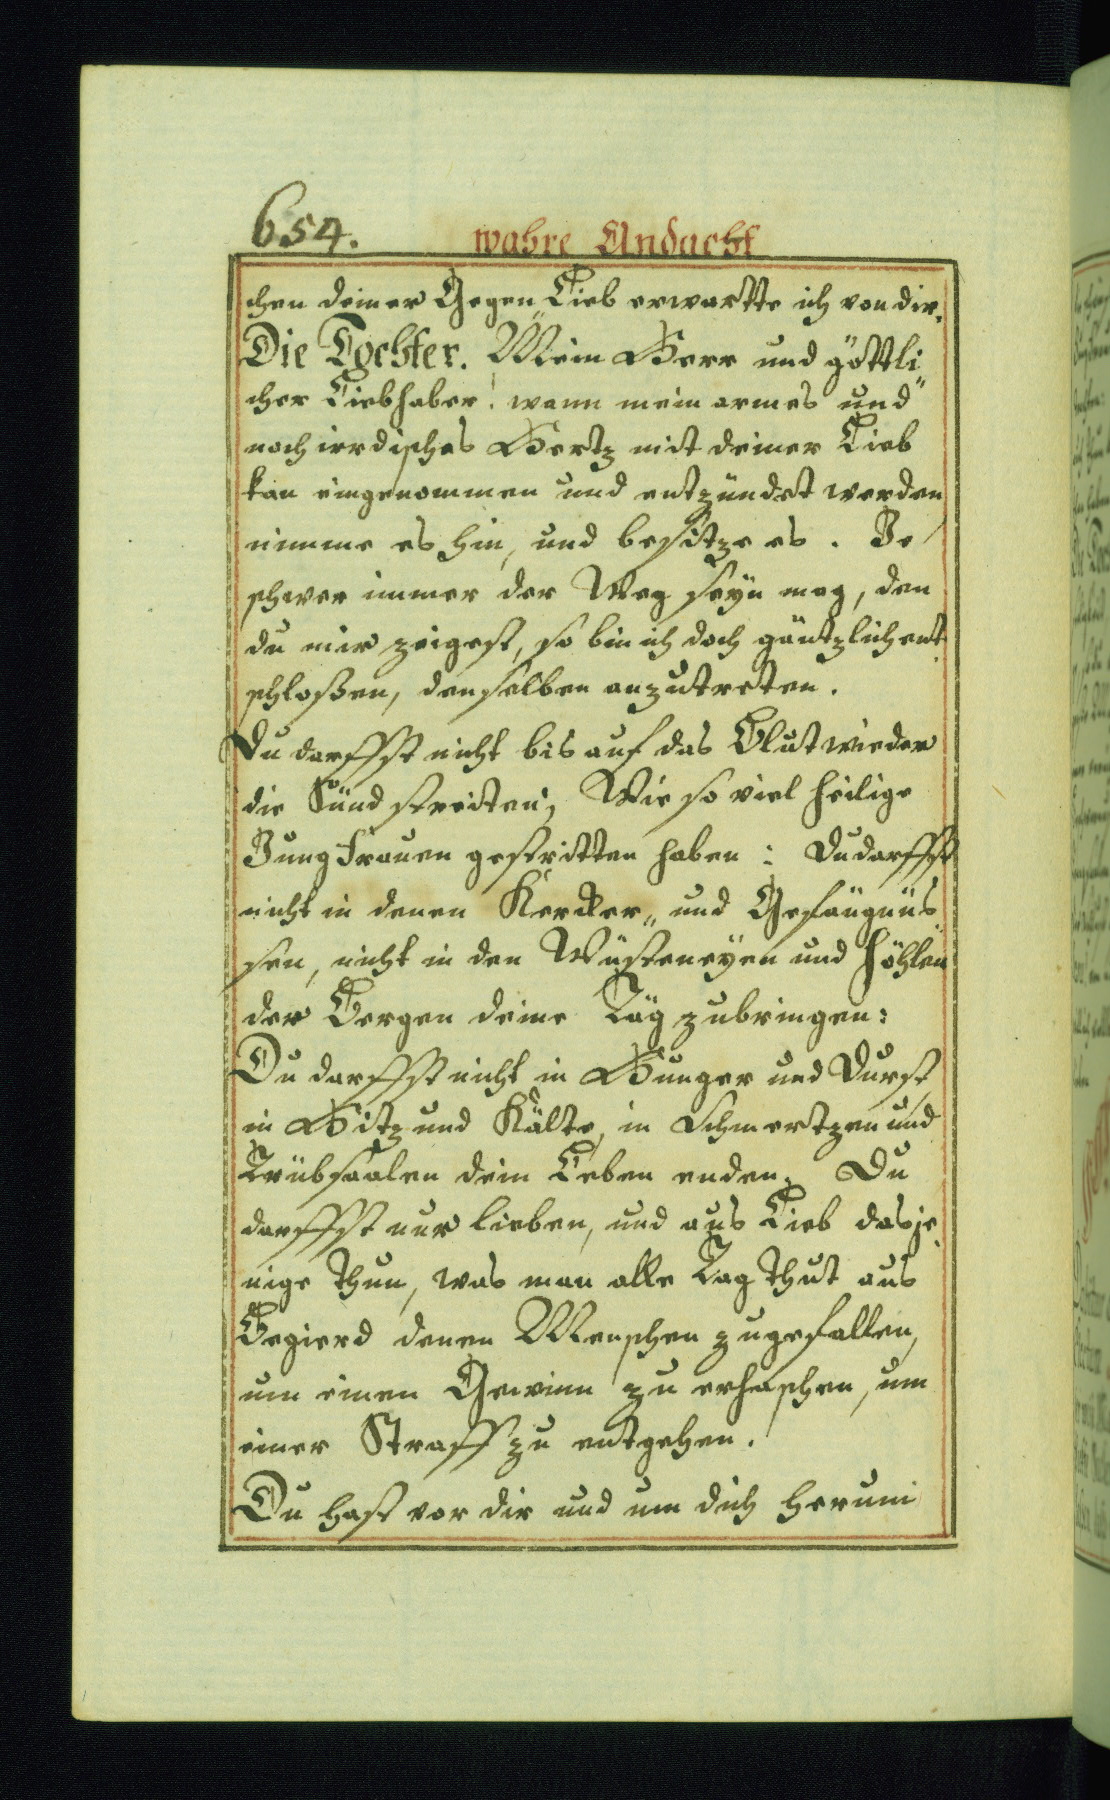 654. wahre Andacht
chen deiner Gegen Lieb erwartte ich von dir.
Die Tochter. Mein Herr und göttli„
cher Liebhaber! wann mein armes und
noch irrdisches Hertz mit deiner Lieb
kan eingenommen und entzündet werden
nimme es hin, und besitze es. Je
schwer immer der Weg seyn mag, den
du mir zeigest, so bin ich doch gäntzlich ent„
schloßen, denselben anzutreten.
Du darffst nicht bis auf das Blut wieder
die Sünd streiten, Wie so viel heilige
Jungfrauen gestritten haben: Du darffst
nicht in denen Kercker„ und Gefängnüs
sen, nicht in den Wüsteneyen und Höhlen
der Bergen deine Täg zubringen:
Du darffst nicht in Hunger und Durst
in Hitz und Kälte, in Schmertzen und
Trübsaalen dein Leben enden. Du
darffst nur lieben, und aus Lieb dasje„
nige Thun, was man alle Tag Thut aus
Begierd denen Menschen zugefallen,
um einen Gewinn zu erhaschen, um
einer Straff zu entgehen.
Du hast vor dir und um dich herum